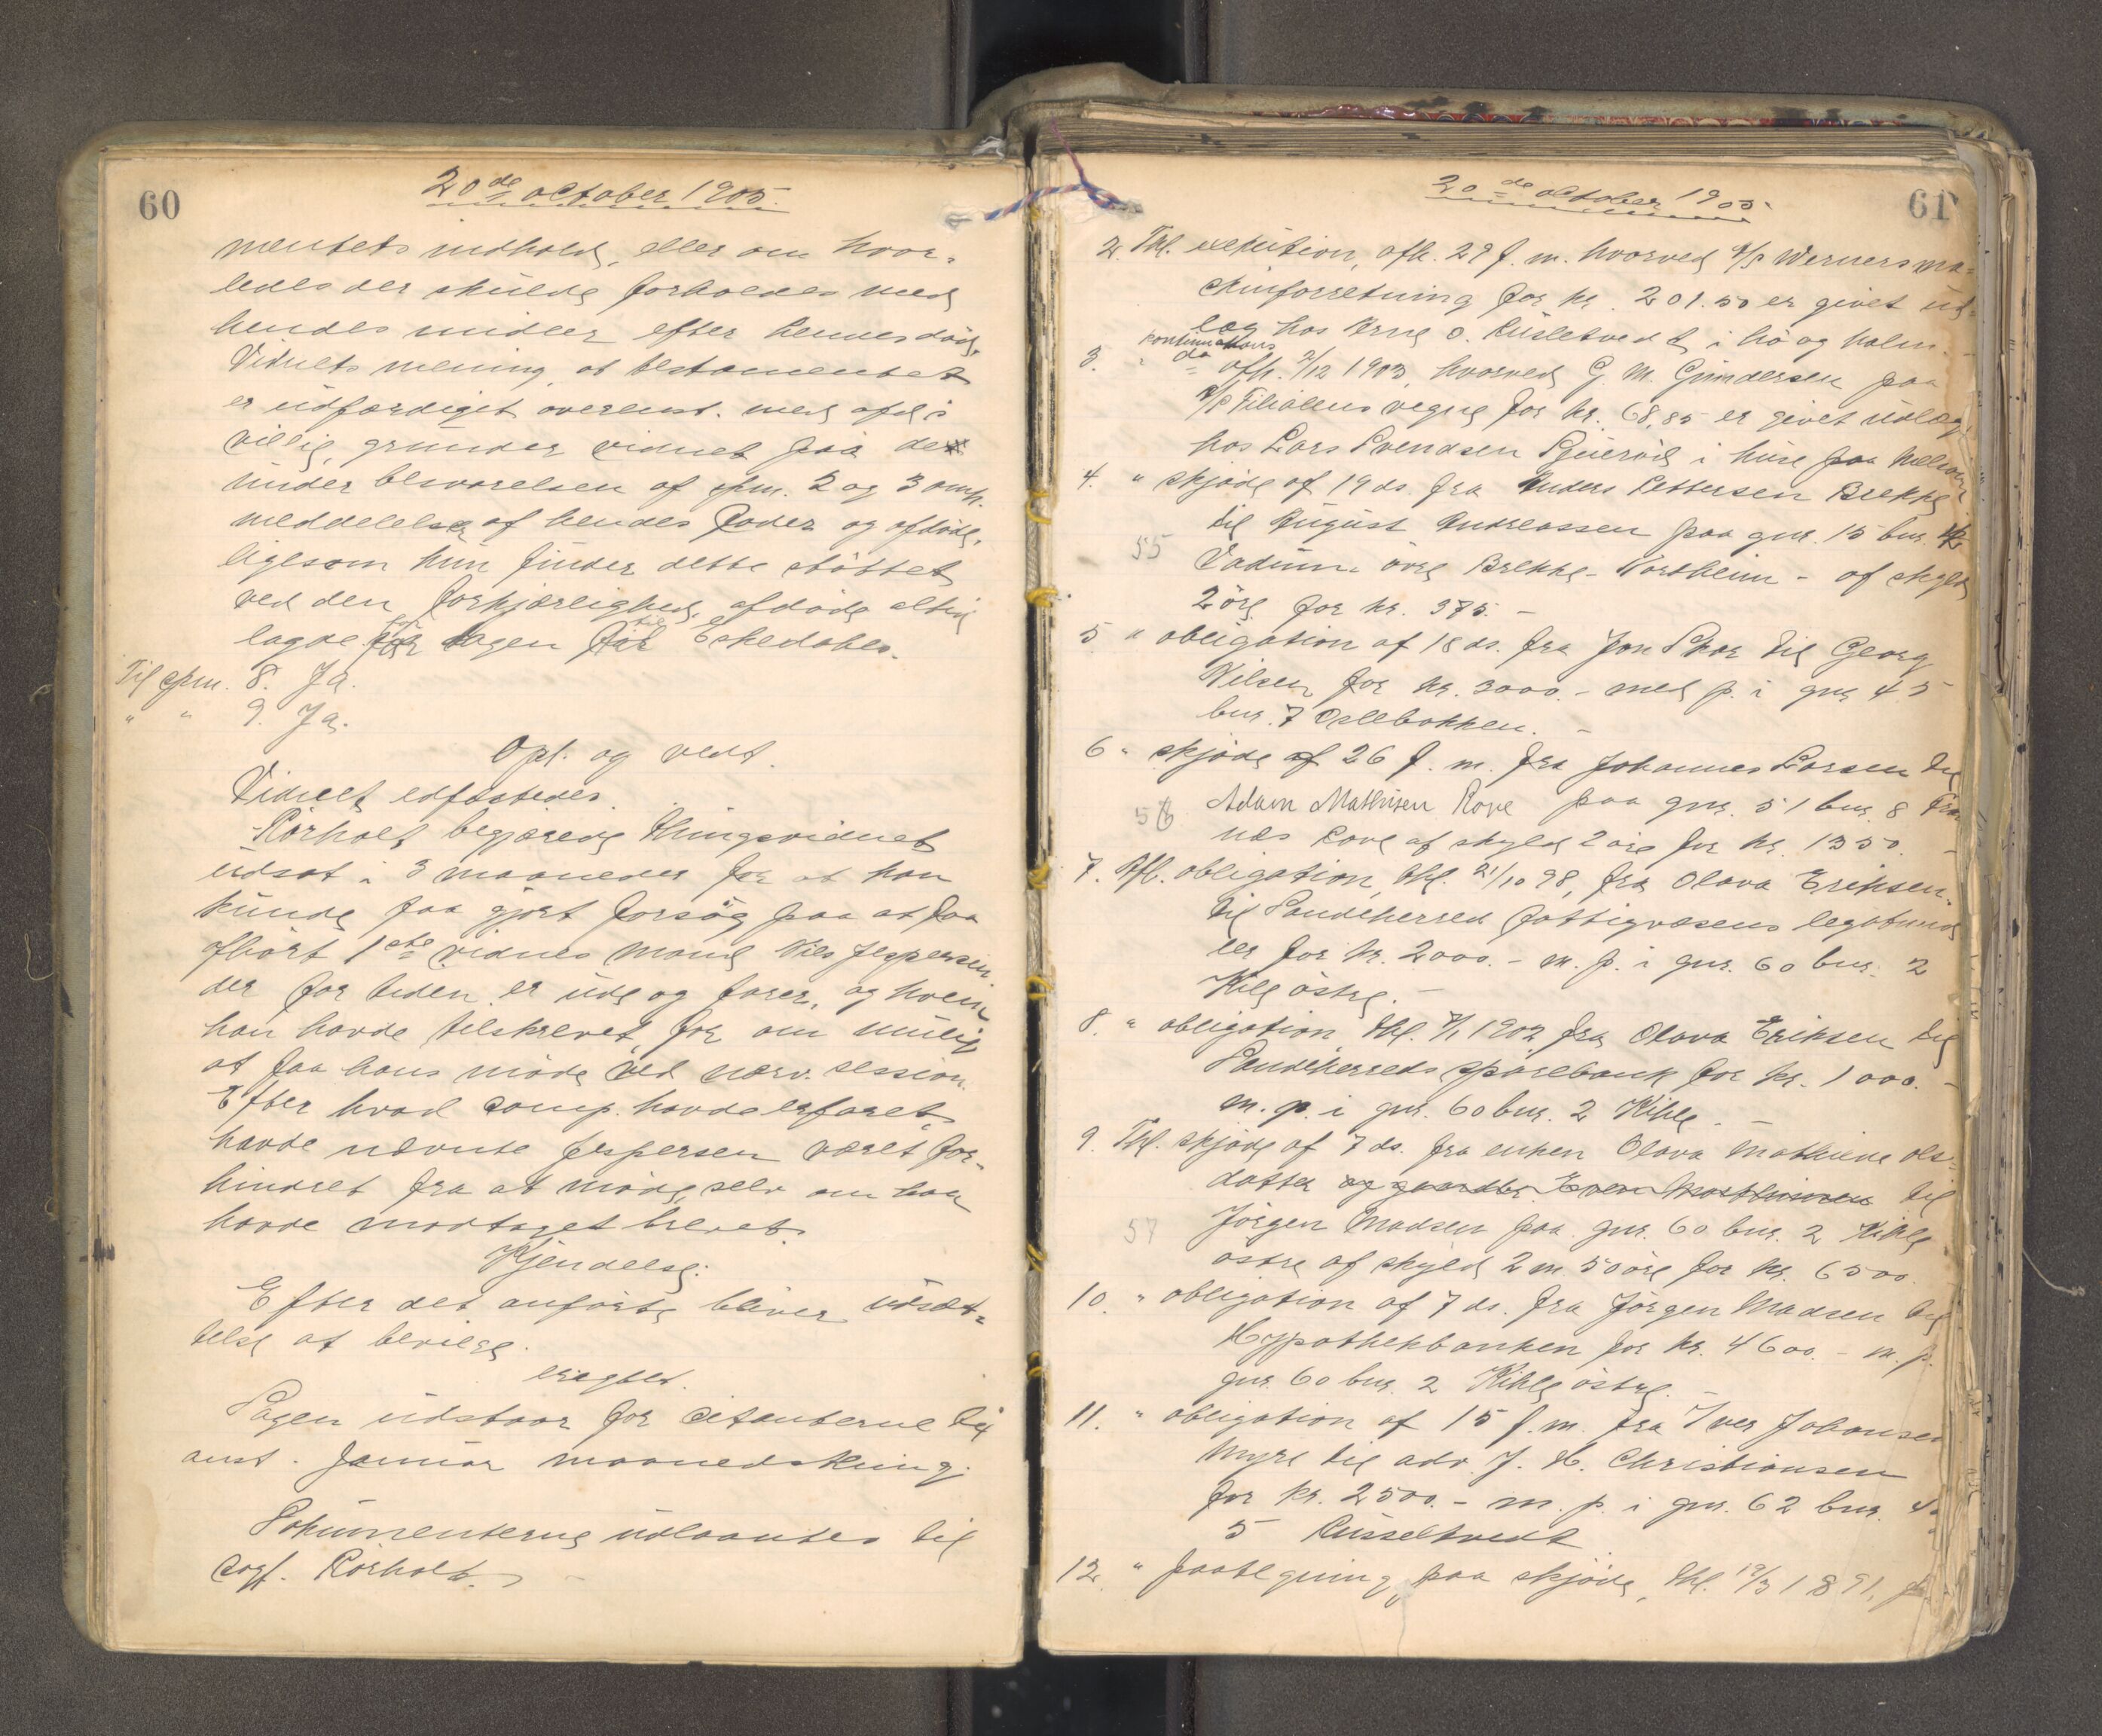 60
20de october 1905.
mentets indhold, eller om hvor-
ledes der skulde forholdes med
hendes midler efter hennes død,
Vidnets mening at testamentet
er udfærdiget overenst. med afd's
villig, grunder vidnet paa de
under besvarelsen af spm. 2 og 3 omh.
meddelelser af hendes Fader og afdøde,
ligesom hun finder dette støttet
ved den forkjærlighed, afdøde altid
lagde for dagen for Eskedahls.
Til spm. 8. Ja.
" " 9. Ja.
Opl. og vedt.
Vidnet edfæstedes.
Rørholt begjærede thingsvidnet
udsat i 3 maaneder for at han
kunde faa gjort forsøg paa at faa
afhørt 1ste vidnes mand Nils Jespersen
der for tiden er ude og farer, og hvem
han havde tilskrevet for om mulig
at faa hans møde ved nærv. session.
Efter hvad comp. havde erfaret,
havde nævnte Jespersen været for-
hindret fra at møde, selv om han
havde modtaget brevet.
Kjendelse:
Efter det anførte bliver udsæt-
telse at bevilge.
eragtet.
Sagen udstaar for citanterne til
anst. Januar maanedsthing.
Dokumenterne udlaantes til
sagf. Rørholt.
61
20de october 1905.
2. Thl. exekution, afh. 29 f. m. hvorved A/S Werners ma-
skinforretning for kr. 201.50 er givet ud-
læg hos Arne O. Rüsletvedt i hø og halm. -
3. " do kontinuations afh. 2/12 1903, hvorved G. M. Gundersen paa
A/S Filialens vegne for kr. 68,85 er givet udlæg
hos Lars Svendsen i huse paa
4. " skjøde af 19 ds. fra Anders Pettersen Brekke
til August Andreassen paa gnr. 15 bnr.
55 Vadum øvre Brekke - Nordheim - af skyld
2 øre for kr. 375. -
5 " obligation af 18 ds. fra Jon Skor til Georg
Nilsen for kr. 3000. - med p. i gnr 45
bnr. 7 Oslebakken. -
6 " skjøde af 26 f. m. fra Johannes Larsen til
56 Adam Mathisen Rove paa gnr. 51 bnr. 8 Fram
næs Rove af skyld 2 øre for kr. 1350. -
7. Afl. obligation, thl. 21/10 98, fra Olava Eriksen
til Sandeherred fattigvæsens legatmid
ler for kr. 2000. - m. p. i gnr. 60 bnr. 2
Kile østre. -
8. " obligation, thl. 7/1 1902 fra Olava Eriksen til
Sandeherreds sparebank for kr. 1000. -
m. p. i gnr. 60 bnr. 2 Kihle. -
9. Thl. skjøde af 7 ds. fra enken Olava Mathiene Ols-
datter og gaardbr. Even Mathisen til
57 Jørgen Madsen paa gnr. 60 bnr. 2 Kihle
østre af skyld 2 m 50 øre for kr. 6500.
10. " obligation af 7 ds. fra Jørgen Madsen til
Hypothekbanken for kr. 4600. - m. p.
gnr. 60 bnr. 2 Kihle østre. -
11. " obligation af 15 f. m. fra Iver Johansen
Myre til adv. J. H. Christiansen
for kr. 2500. - m. p. i gnr. 62 bnr. 4
5 Rüsseltvedt
12. " paategning paa skjøde, thl. 12/3 1891,